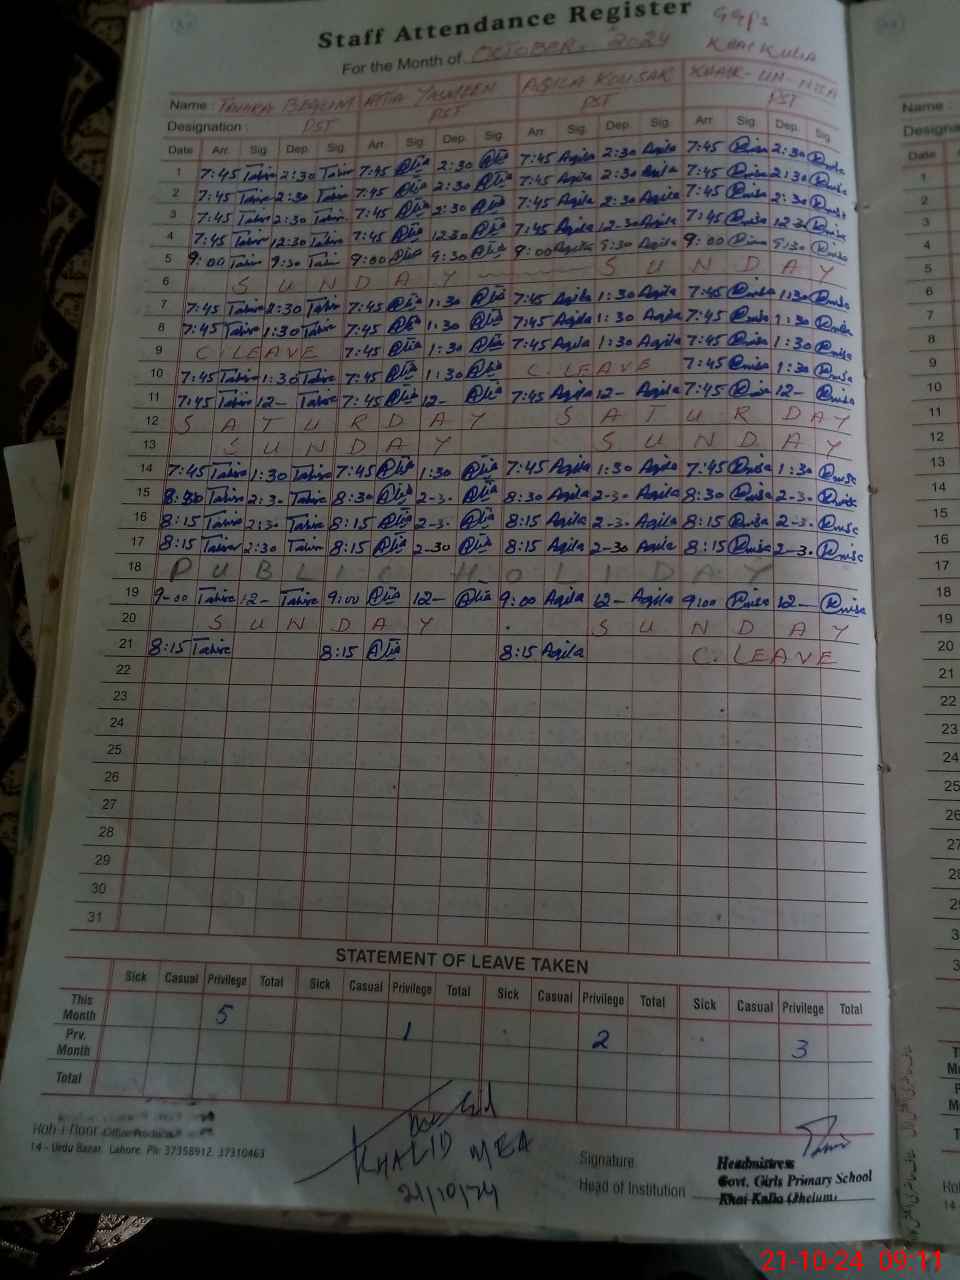 Staff Attendance Register
GGPS
For the Month of OCTOBER. 2024 KHAI KULIA
Name : TAHIRA BEGUM ATIA YASMEEN AQILA KOUSAR KHAIR-UN-NISA
Designation : PST PST PST PST
Date Arr. Sig. Dep. Sig. Arr. Sig. Dep. Sig. Arr. Sig. Dep. Sig. Arr. Sig. Dep. Sig.
1 7:45 Tahira 2:30 Tahira 7:45 Atia 2:30 Atia 7:45 Aqila 2:30 Aqila 7:45 Nisa 2:30 Nisa
2 7:45 Tahira 2:30 Tahira 7:45 Atia 2:30 Atia 7:45 Aqila 2:30 Aqila 7:45 Nisa 2:30 Nisa
3 7:45 Tahira 2:30 Tahira 7:45 Atia 2:30 Atia 7:45 Aqila 2:30 Aqila 7:45 Nisa 2:30 Nisa
4 7:45 Tahira 12:30 Tahira 7:45 Atia 12:30 Atia 7:45 Aqila 12-30 Aqila 7:45 Nisa 12:30 Nisa
5 9:00 Tahira 9:30 Tahira 9:00 Atia 9:30 Atia 9:00 Aqila 9:30 Aqila 9:00 Nisa 9:30 Nisa
6 SUNDAY SUNDAY
7 7:45 Tahira 1:30 Tahira 7:45 Atia 1:30 Atia 7:45 Aqila 1:30 Aqila 7:45 Nisa 1:30 Nisa
8 7:45 Tahira 1:30 Tahira 7:45 Atia 1:30 Atia 7:45 Aqila 1:30 Aqila 7:45 Nisa 1:30 Nisa
9 C. LEAVE 7:45 Atia 1:30 Atia 7:45 Aqila 1:30 Aqila 7:45 Nisa 1:30 Nisa
10 7:45 Tahira 1:30 Tahira 7:45 Atia 1:30 Atia C. LEAVE 7:45 Nisa 1:30 Nisa
11 7:45 Tahira 12- Tahira 7:45 Atia 12- Atia 7:45 Aqila 12- Aqila 7:45 Nisa 12- Nisa
12 SATURDAY SATURDAY
13 SUNDAY SUNDAY
14 7:45 Tahira 1:30 Tahira 7:45 Atia 1:30 Atia 7:45 Aqila 1:30 Aqila 7:45 Nisa 1:30 Nisa
15 8:30 Tahira 2:3. Tahira 8:30 Atia 2-3. Atia 8:30 Aqila 2-3. Aqila 8:30 Nisa 2-3. Nisa
16 8:15 Tahira 2:3. Tahira 8:15 Atia 2-3. Atia 8:15 Aqila 2-3. Aqila 8:15 Nisa 2-3. Nisa
17 8:15 Tahira 2:30 Tahira 8:15 Atia 2-30 Atia 8:15 Aqila 2-30 Aqila 8:15 Nisa 2-3. Nisa
18 PUBLIC HOLIDAY
19 9-00 Tahira 12- Tahira 9:00 Atia 12- Atia 9:00 Aqila 12- Aqila 9:00 Nisa 12- Nisa
20 SUNDAY SUNDAY
21 8:15 Tahira 8:15 Atia 8:15 Aqila C. LEAVE
22
23
24
25
26
27
28
29
30
31
STATEMENT OF LEAVE TAKEN
Sick Casual Privilege Total Sick Casual Privilege Total Sick Casual Privilege Total Sick Casual Privilege Total
This Month 5 1 2 3
Prv. Month
Total
Office Products
14 - Urdu Bazar, Lahore. Ph: 37358912, 37310463
KHALID MEA
21/10/24
Signature
Head of Institution
Headmistress
Govt. Girls Primary School
Khai Kulia (Jhelum)
21-10-24 09:11